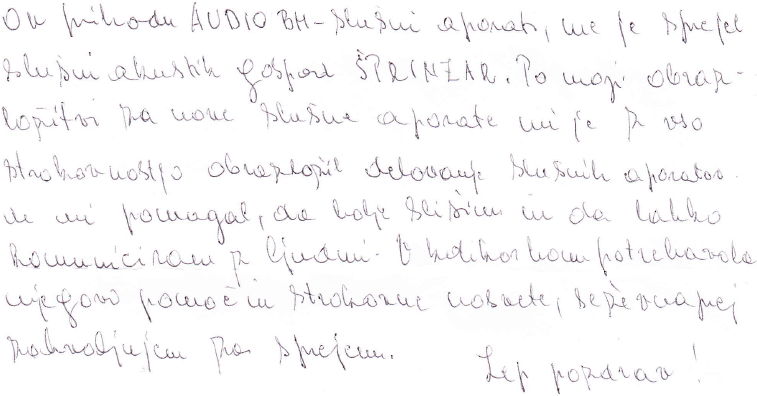 Ob prihodu AUDIO BM - slušni aparati, me je sprejel
slušni akustik gospod ŠPRINZAR. Po moji obraz-
ložitvi za nove slušne aparate mi je z vso
strokovnostjo obrazložil delovanje slušnih aparatov
in mi pomagal, da bolje slišim in da lahko
komuniciram z ljudmi. V kolikor bom potrebovala
njegovo pomoč in strokovne nasvete, se že vnaprej
zahvaljujem za sprejem.
Lep pozdrav!